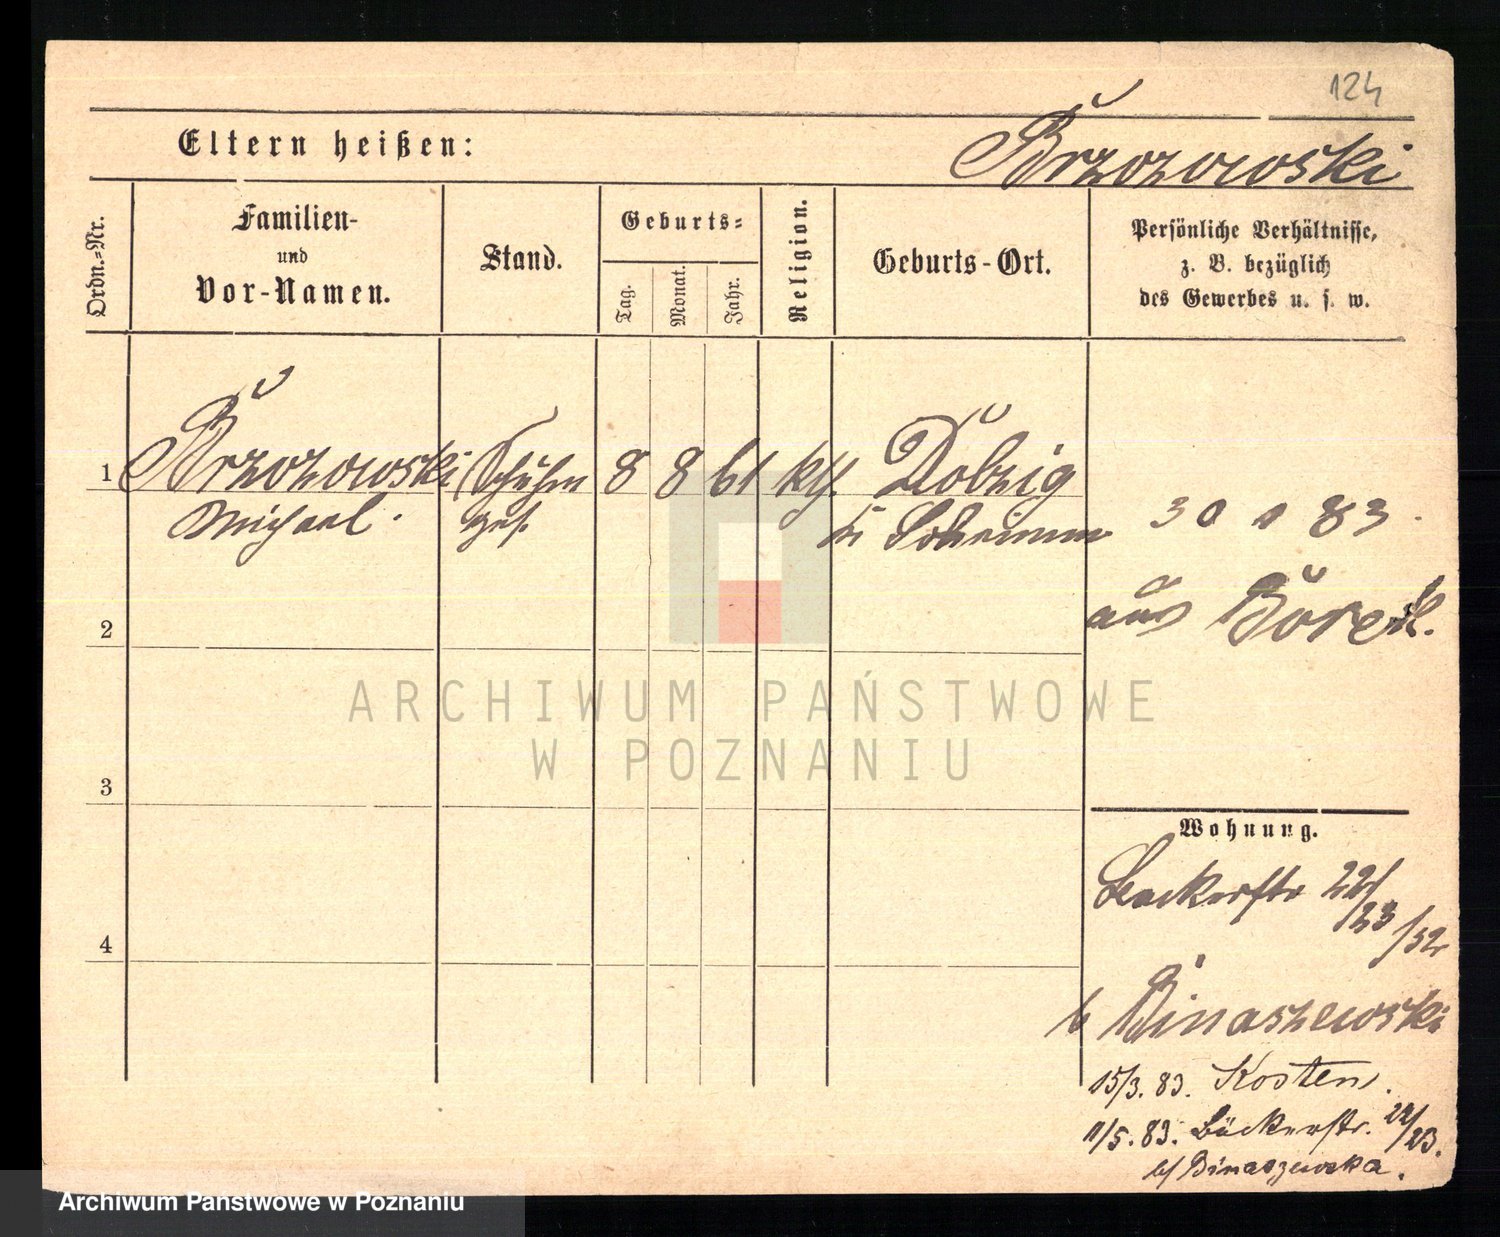 124
Eltern heißen:
Brzozowski
Ordn.-Nr.
Familien-
und
Vor-Namen.
Stand.
Geburts-
Tag.
Monat.
Jahr.
Religion.
Geburts-Ort.
Persönliche Verhältnisse,
z. B. bezüglich
des Gewerbes u. s. w.
1 Brzozowski Schuhm 8 8 61 kth. Dobzig
Michael. ges.
30 83
aus Borek.
2
ARCHIWUM PAŃSTWOWE
W POZNANIU
3
Wohnung.
Baeckerstr 22/
23
4
b Binaszewski
15/3. 83. Kosten.
11/5. 83. Bäckerstr. 22/23.
b/ Binaszewska.
Archiwum Państwowe w Poznaniu